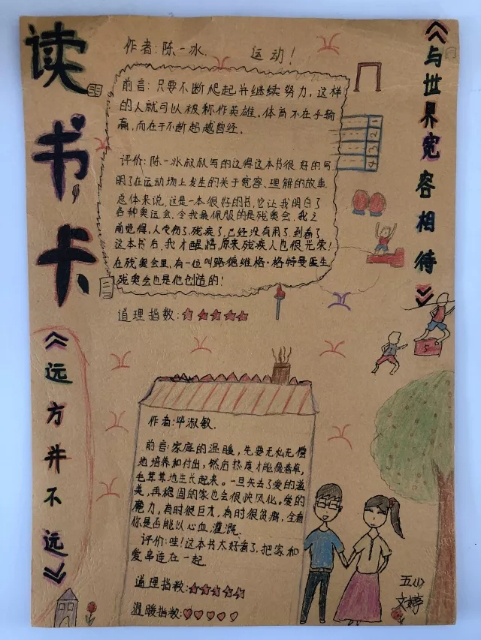 读书卡
《与世界宽容相待》
作者:陈一冰
运动!
前言:只要不断崛起并继续努力,这样
的人就可以被称作英雄。体育不在乎输
赢,而在于不断超越自己。
评价:陈一冰叔叔写的
这本书很好的写
在运动场上发生的关于宽容、理解的故事
总体来说,这是一本很好的书,它让我明白了
各种奥运会,令我最佩服的是残奥会,我之
前觉得人受伤了,残疾了,已经没有用了,到看了
这本书后,我才醒悟原来残疾人也很光荣!
在残奥会里,有一位叫路德维格·格特曼医生,
残奥会也是他创造的!
道理指数:
《远方并不远》
作者:毕淑敏
前言:家庭的温暖,先要
培养和付出,然后
起来。一旦失去了爱的滋
养,再稳固的家也会很快风化。爱的
魔力,有时很巨大,有时很
你是否能以心血灌溉。
评价:哇!这本书太好看了,把家和
爱串连在一起
道理指数:
温暖指数:
五(1)
文婷